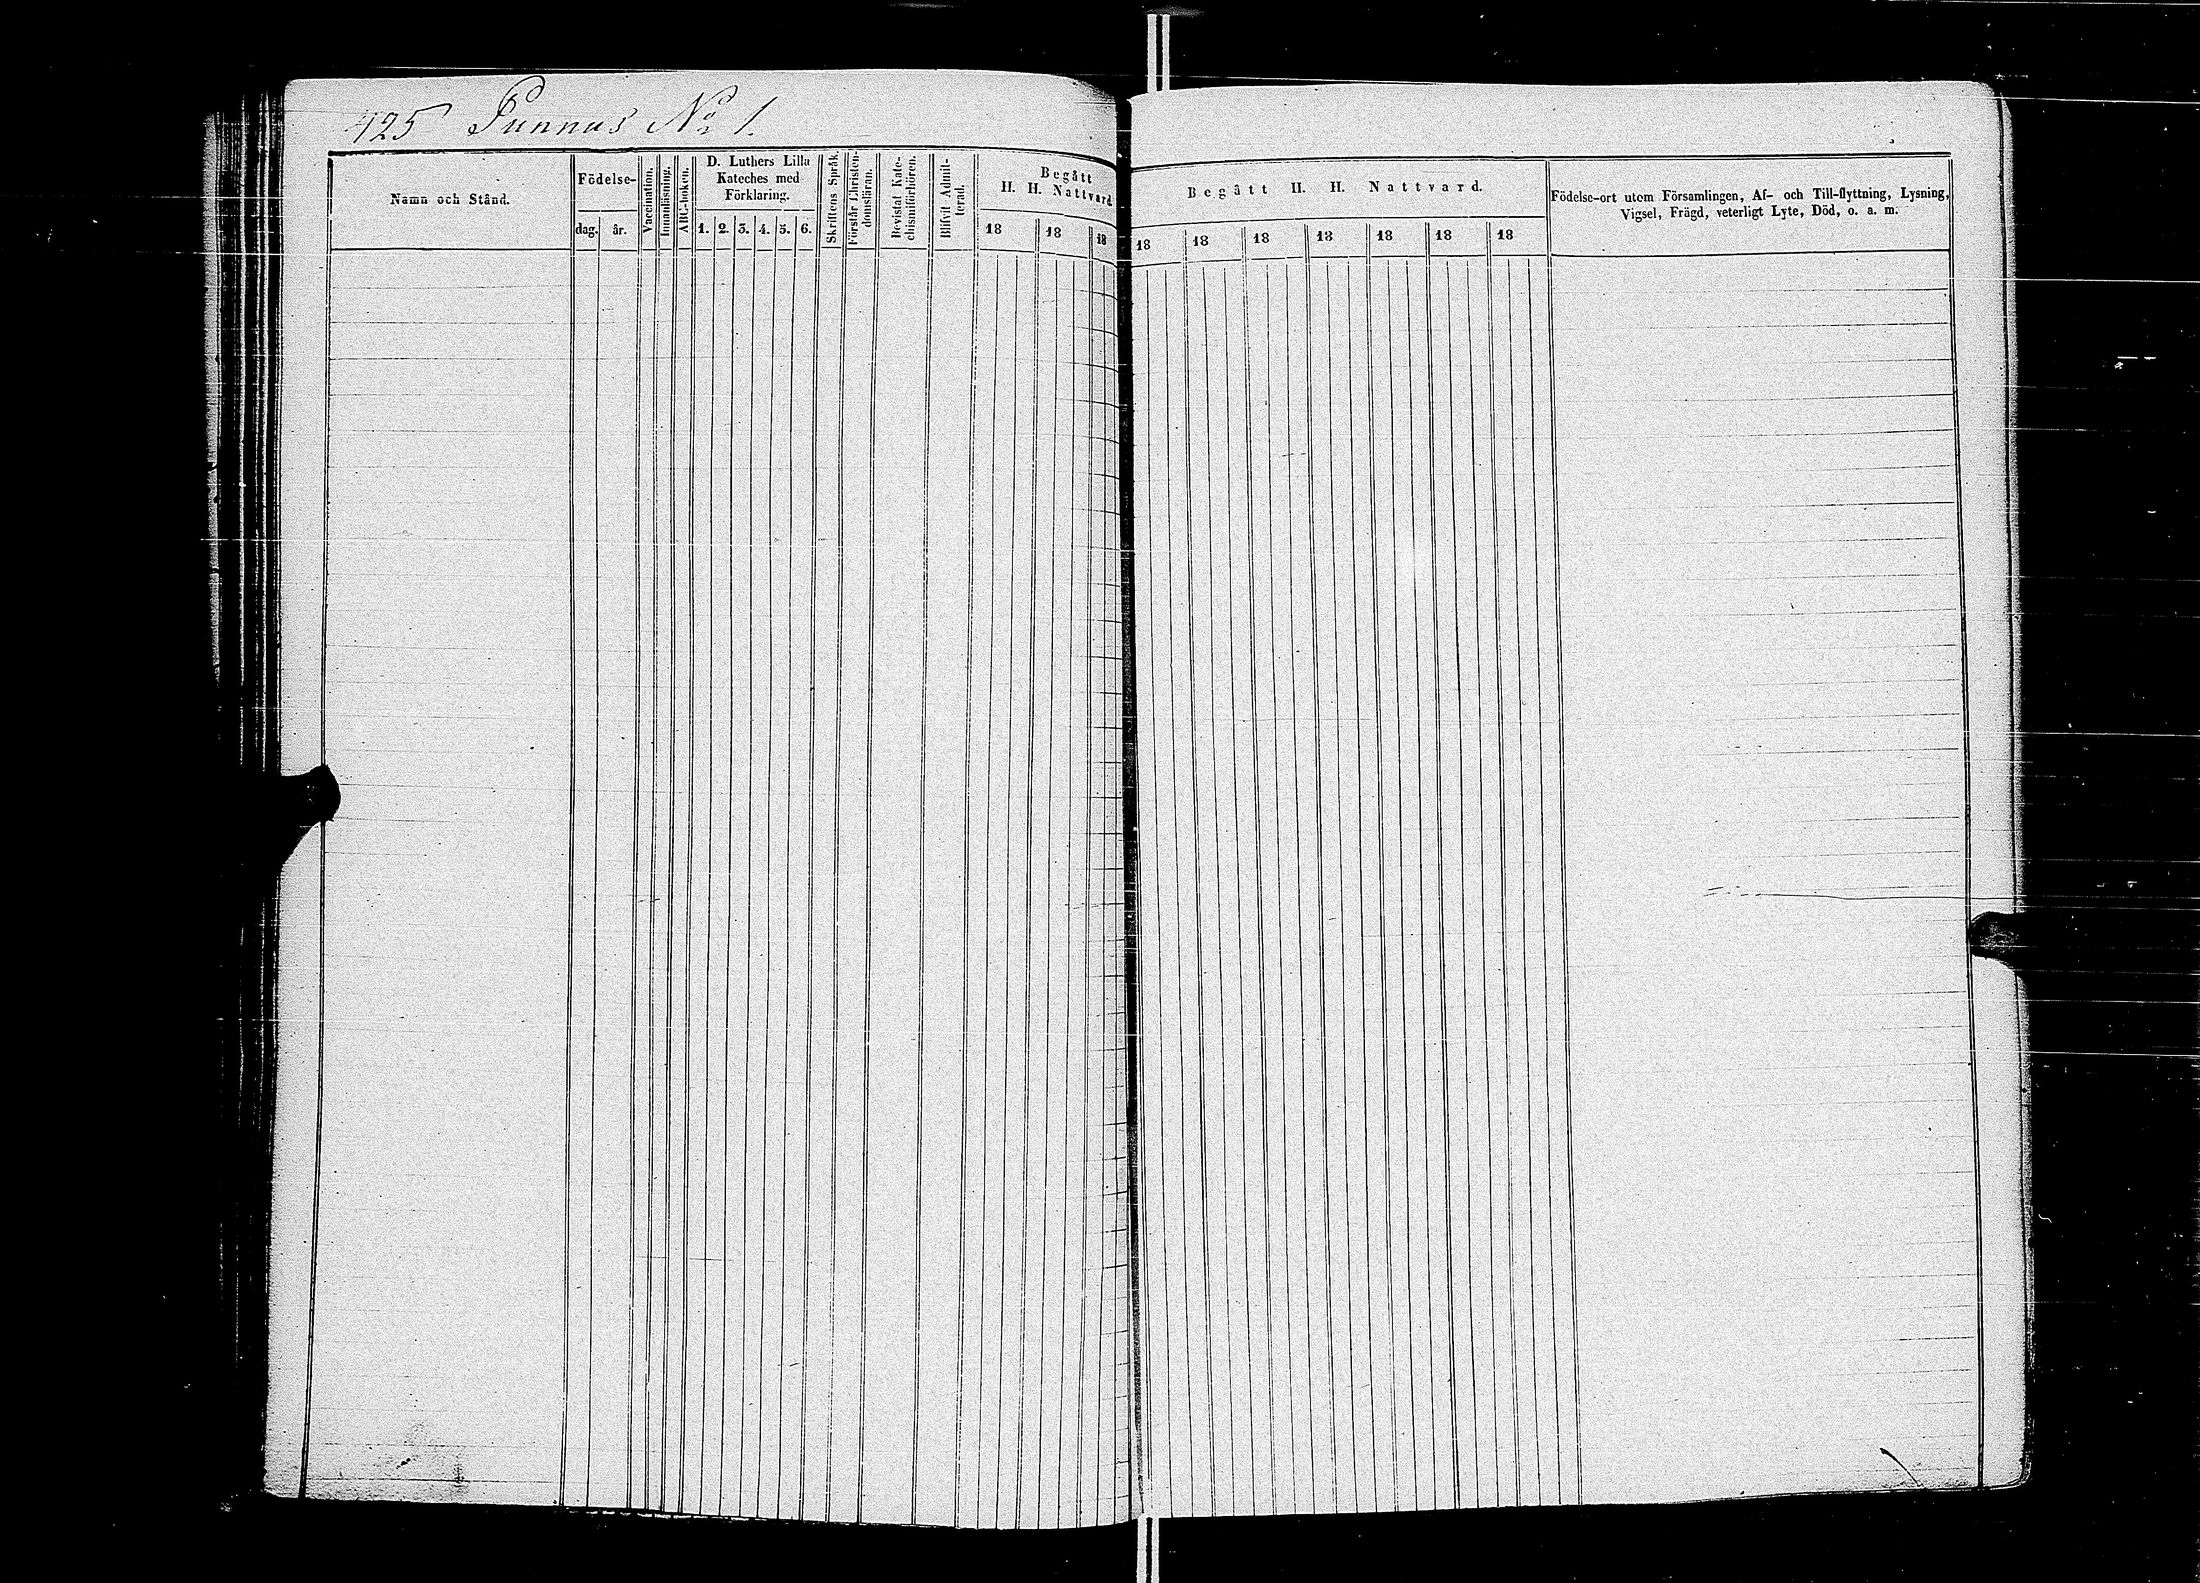 425 Punnus No 1.
Namn och Stånd.
Födelse-
dag. år.
Vaccination.
Innanläsning.
ABC-boken.
D. Luthers Lilla
Kateches med
Förklaring.
1. 2. 3. 4. 5. 6.
Skriftens Språk.
Förstår Christen-
domsläran.
Bevistat Kate-
chismiförhören.
Blifvit Admit-
terad.
Begått
H. H. Nattvard
18 18 18
Begått H. H. Nattvard.
18 18 18 18 18 18 18
Födelse-ort utom Församlingen, Af- och Till-flyttning, Lysning,
Vigsel, Frägd, veterligt Lyte, Död, o. a. m.